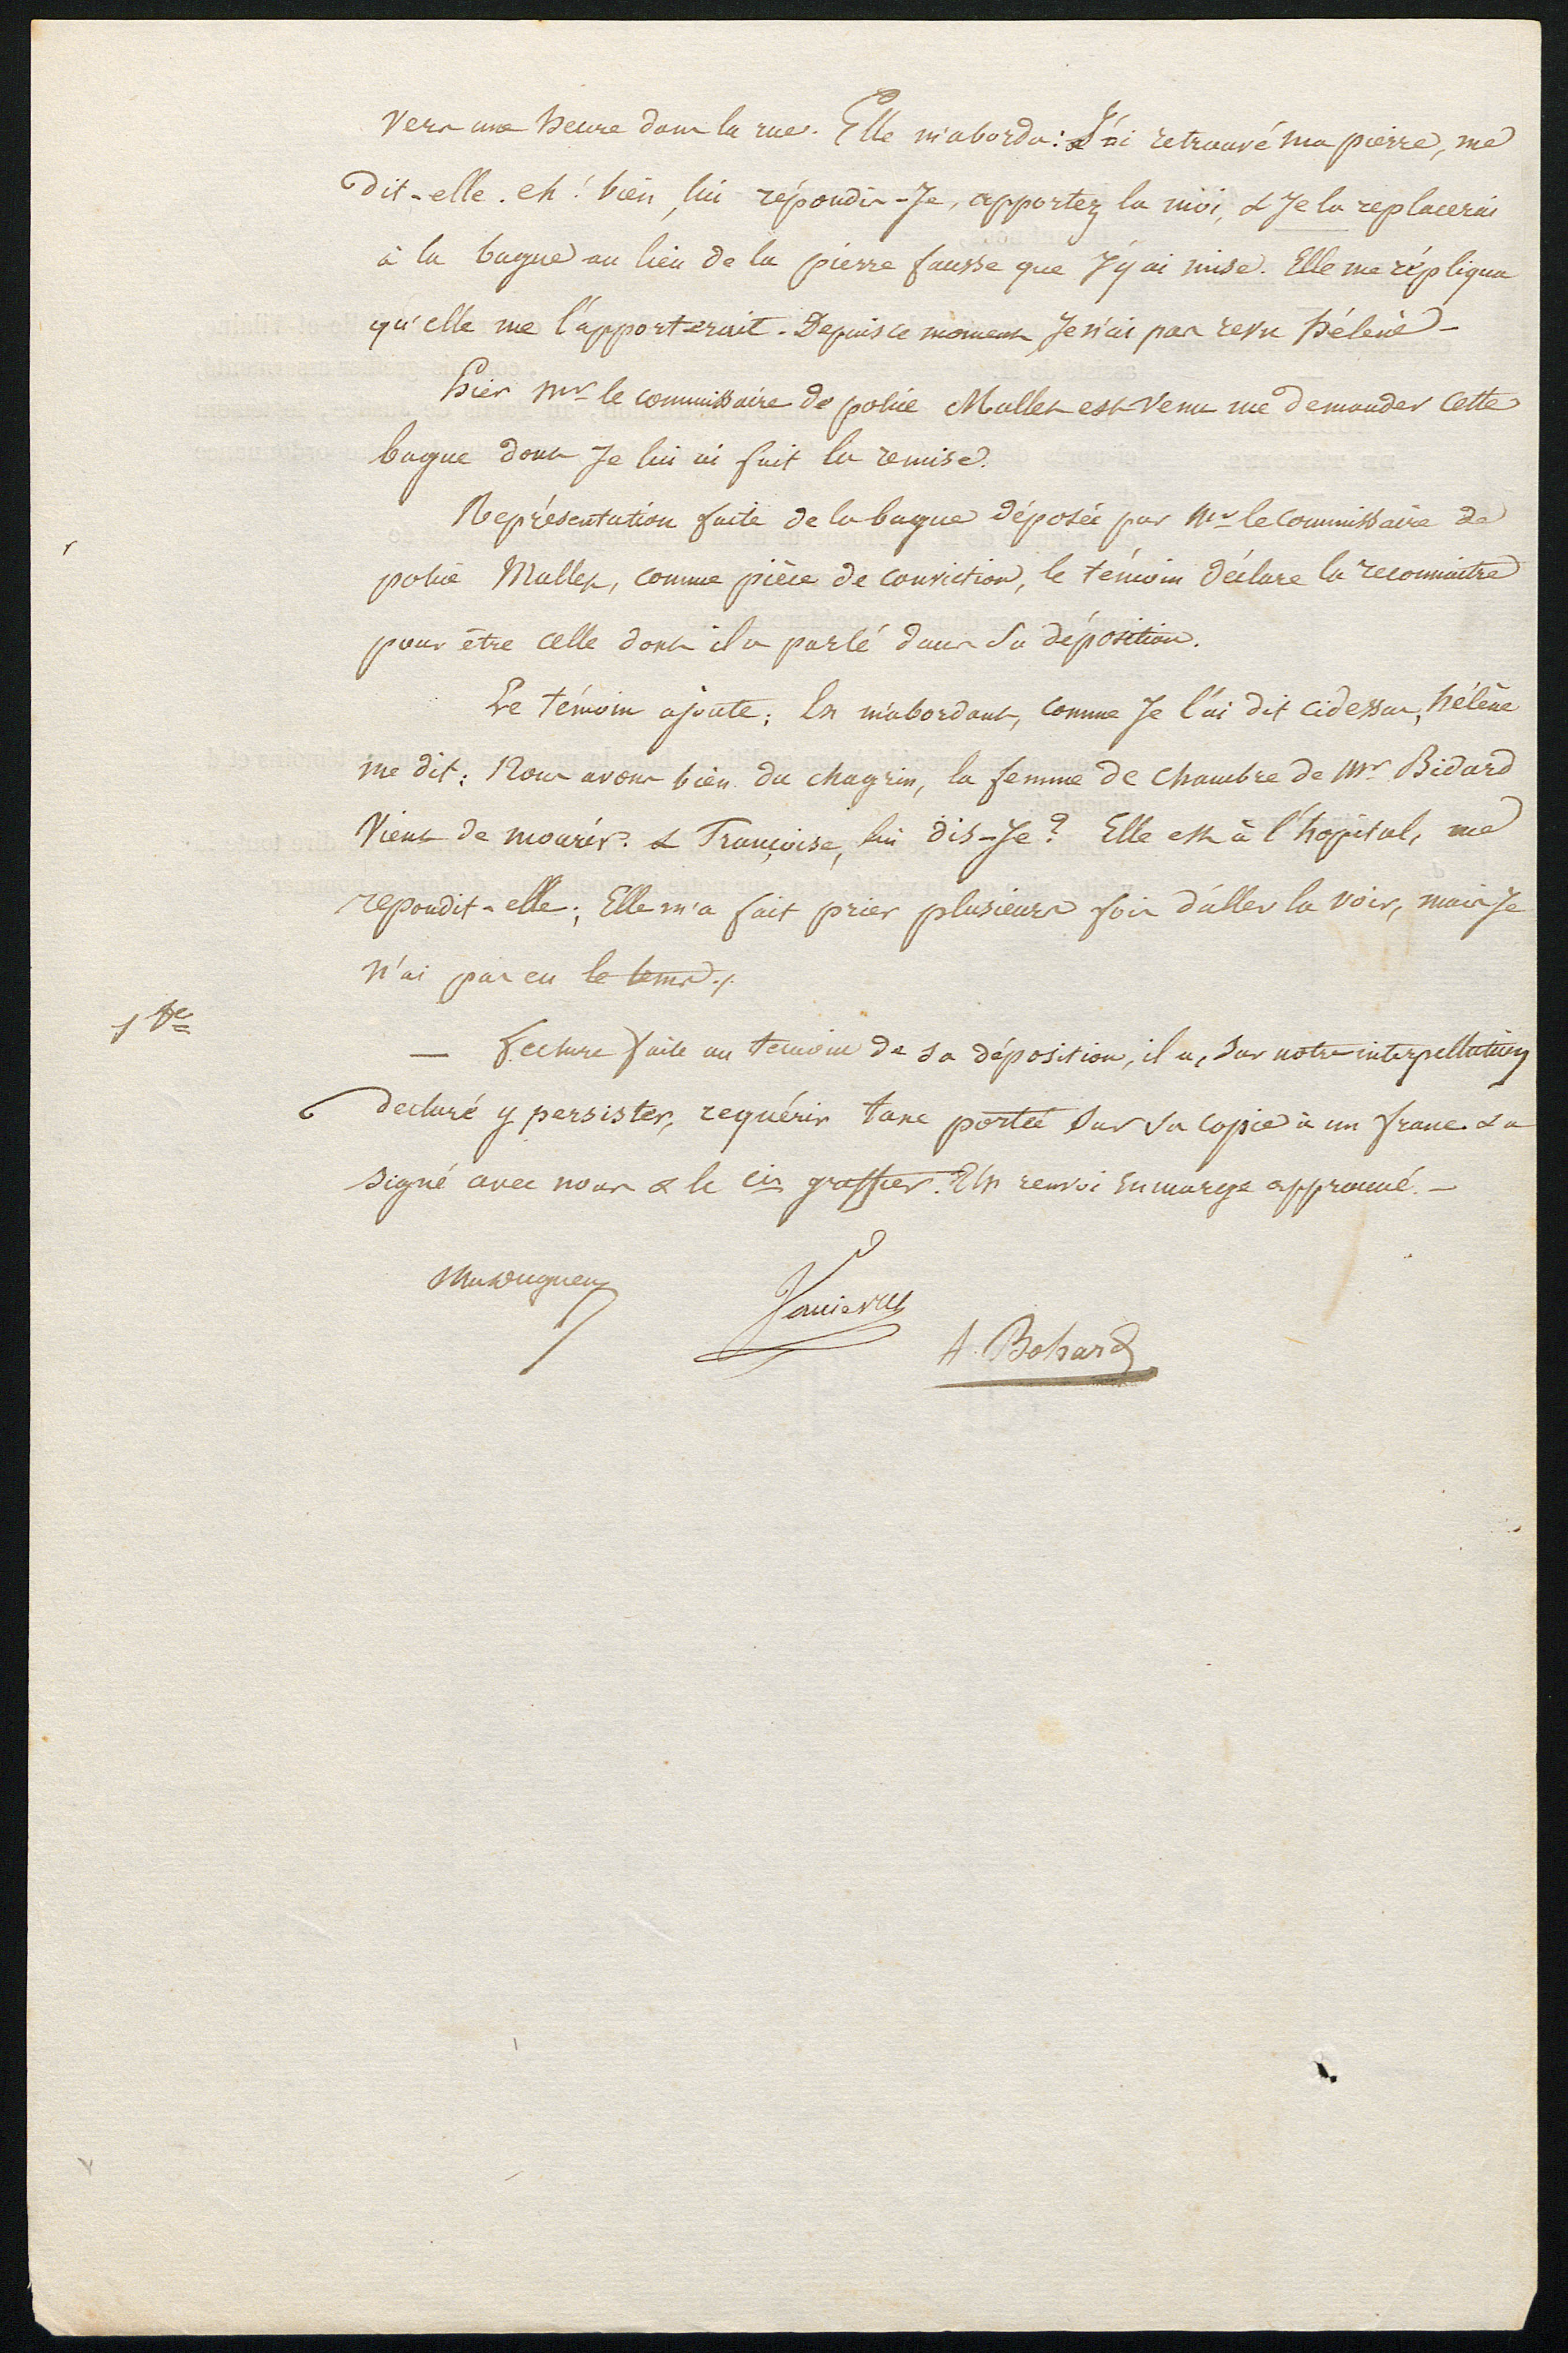 vers une heure dans la rue. Elle m'aborda: J'ai retrouvé ma pierre, me
dit-elle. eh! bien, lui répondis-Je, apportez la moi, & Je la replacerai
à la bague au lieu de la pierre fausse que J'y ai mise. Elle me répliqua
qu'elle me l'apporterait. Depuis ce moment Je n'ai pas revu hélène –
hier Mr le commissaire de police Mallet est venu me demander cette
bague dont Je lui ai fait la remise.
Représentation faite de la bague déposée par Mr le commissaire de
police Mallet, comme pièce de conviction, le témoin déclare la reconnaitre
pour être celle dont il a parlé dans sa déposition.
Le témoin ajoute: En m'abordant, comme Je l'ai dit cidessus, hélène
me dit: Nous avons bien du chagrin, la femme de chambre de Mr Bidard
vient de mourir. & Françoise, lui dis-Je? Elle est à l'hopital, me
repondit-elle; Elle m'a fait prier plusieurs fois d'aller la voir, mais Je
n'ai pas eu le tems ./.
1 te
— Lecture faite au temoin de sa déposition, il a, sur notre interpellation
declaré y persister, requérir taxe portée sur sa copie à un franc & a
signé avec nous & le cis greffier. Un renvoi en marge approuvé. –
A. Bohard